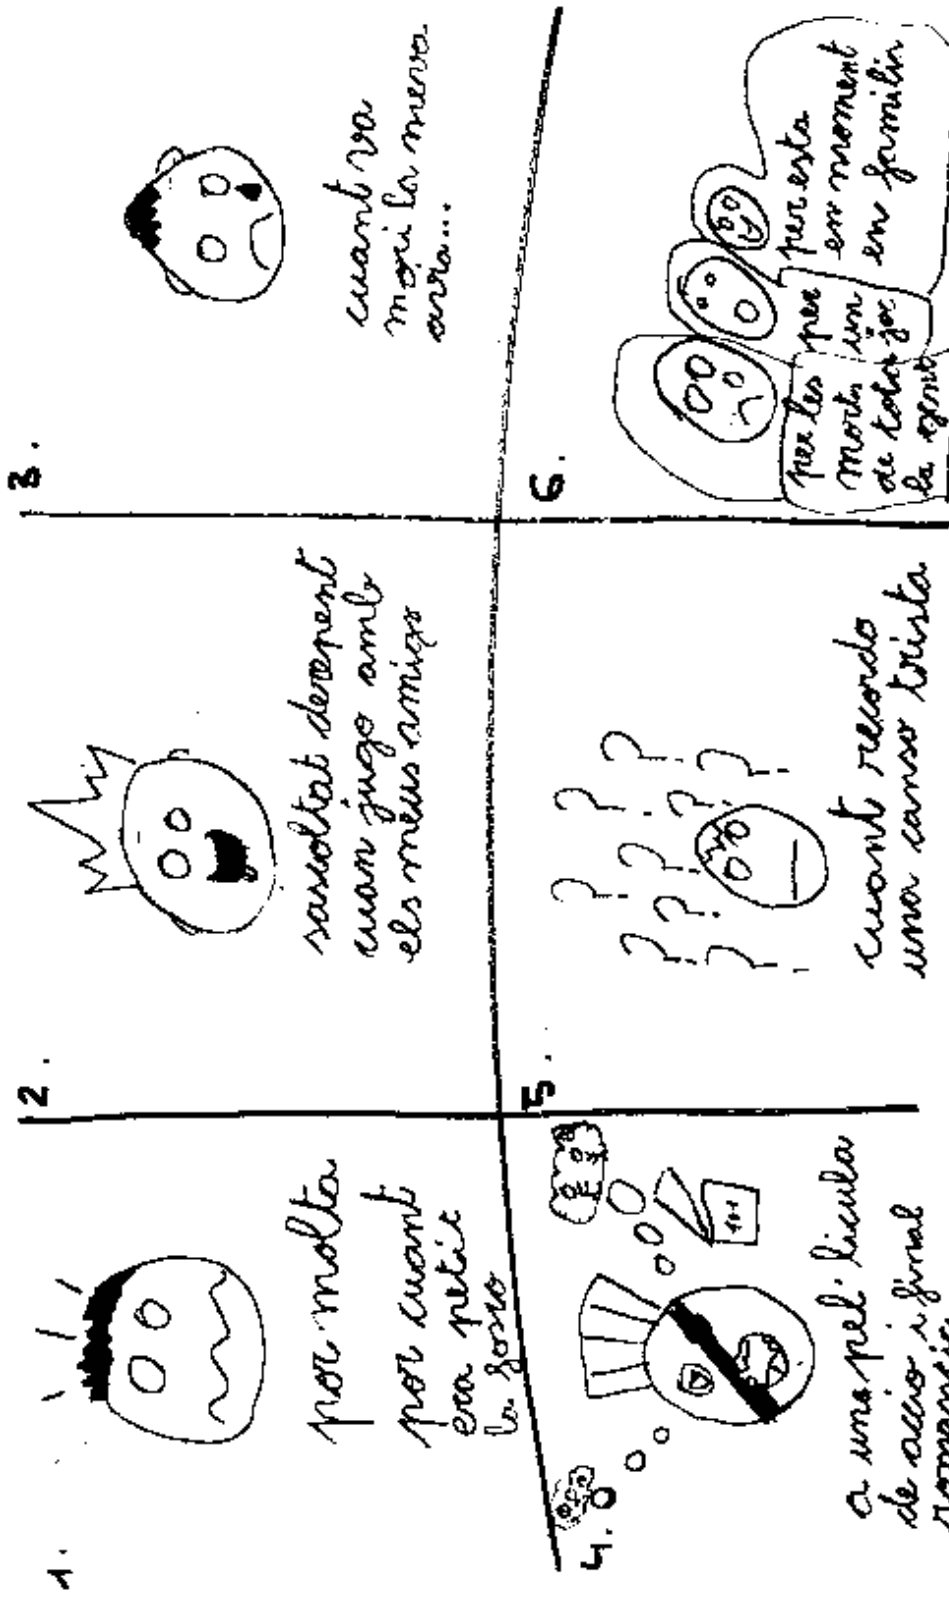 1.
por molta
por cuant
era petit
la foso
2.
sascoltat derepent
cuan jugo amb
els meus amigs
3.
cuant va
mori la meva
avia...
4.
1+1
a una pel·licula
de accio i final
romantic
5.
? ? ? ? ? ? ? ? ? ?
cuant recordo
una canso trista
6.
per les
morts
de tota
la gent
per
un
joc
per esta
en moment
en familia